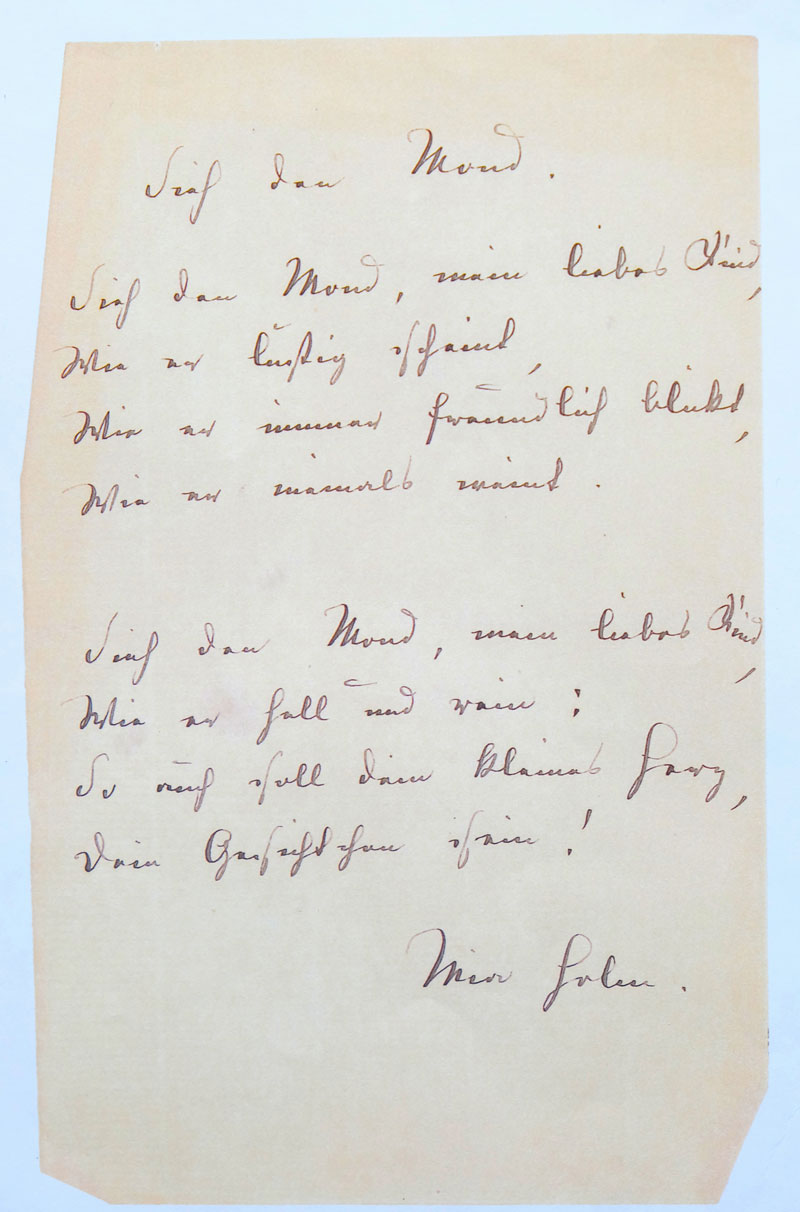 Sieh den Mond.
Sieh den Mond, mein liebes Kind,
Wie er lustig scheint,
Wie er immer freundlich blickt,
Wie er niemals weint.
Sieh den Mond, mein liebes Kind,
Wie er hell und rein;
So auch soll dein kleines Herz,
Dein Gesichtchen sein!
Mia Holm.